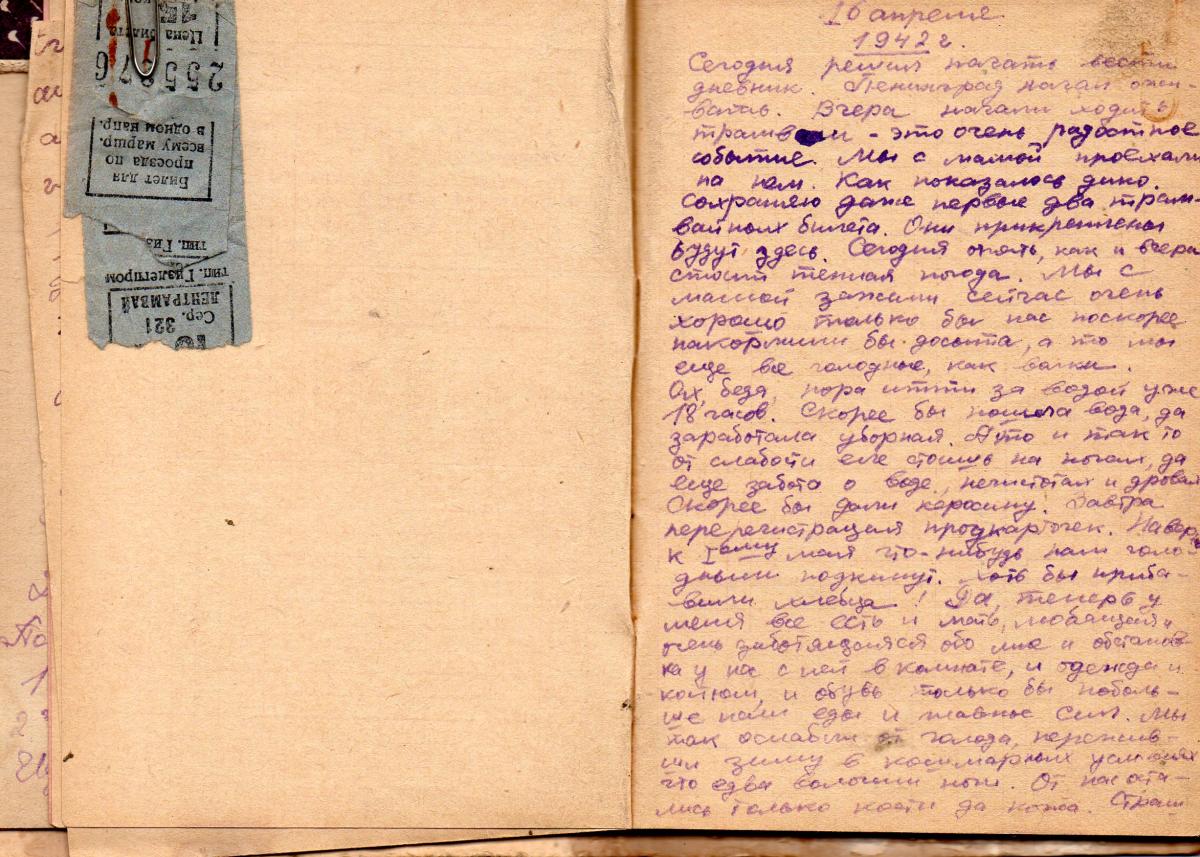 Цена билета
15
255876
Билет для
проезда по
всему маршр.
в одном напр.
тип. Гиз
тип. Гизлегпром
ЛЕНТРАМВАЙ
Сер. 321
16 апреля
1942 г.
Сегодня решил начать вести
дневник. Ленинград начал ожи-
вать. Вчера начали ходить
трамваи - это очень радостное
событие. Мы с мамой проехали
на нем. Как показалось дико.
Сохраняю даже первые два трам-
вайных билета. Они прикреплены
будут здесь. Сегодня опять, как и вчера
стоит теплая погода. Мы с
мамой зажили сейчас очень
хорошо только бы нас поскорее
накормили бы досыта, а то мы
еще все голодные, как волки.
Ох, беда, пора итти за водой уже
18 часов. Скорее бы пошла вода, да
заработала уборная. А то и так то
от слабости еле стоишь на ногах, да
еще забота о воде, нечистотах и дровах
Скорее бы дали керосину. Завтра
перерегистрация продкарточек. Навер
к 1ому мая что-нибудь нам голо-
дным подкинут. Хоть бы приба-
вили хлебца! Да, теперь у
меня все есть и мать, любящая и
очень заботящаяся обо мне и обстанов-
ка у нас с ней в комнате, и одежда и
костюм, и обувь только бы поболь-
ше нам еды и главное сил. Мы
так ослабли от голода, пережив-
ши зиму в кошмарных условиях
что едва волочим ноги. От нас оста-
лись только кости да кожа. Страш-